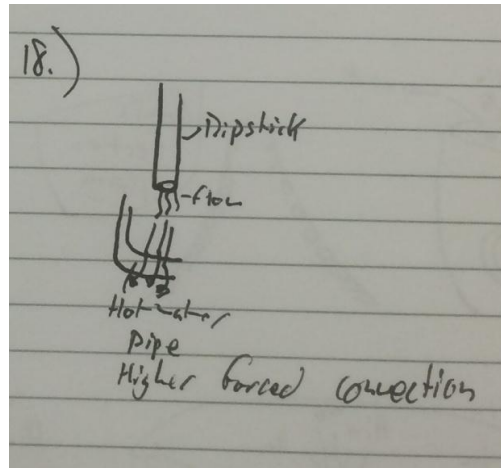 18.)
Dipstick
flow
Hot water
Pipe
Higher forced convection